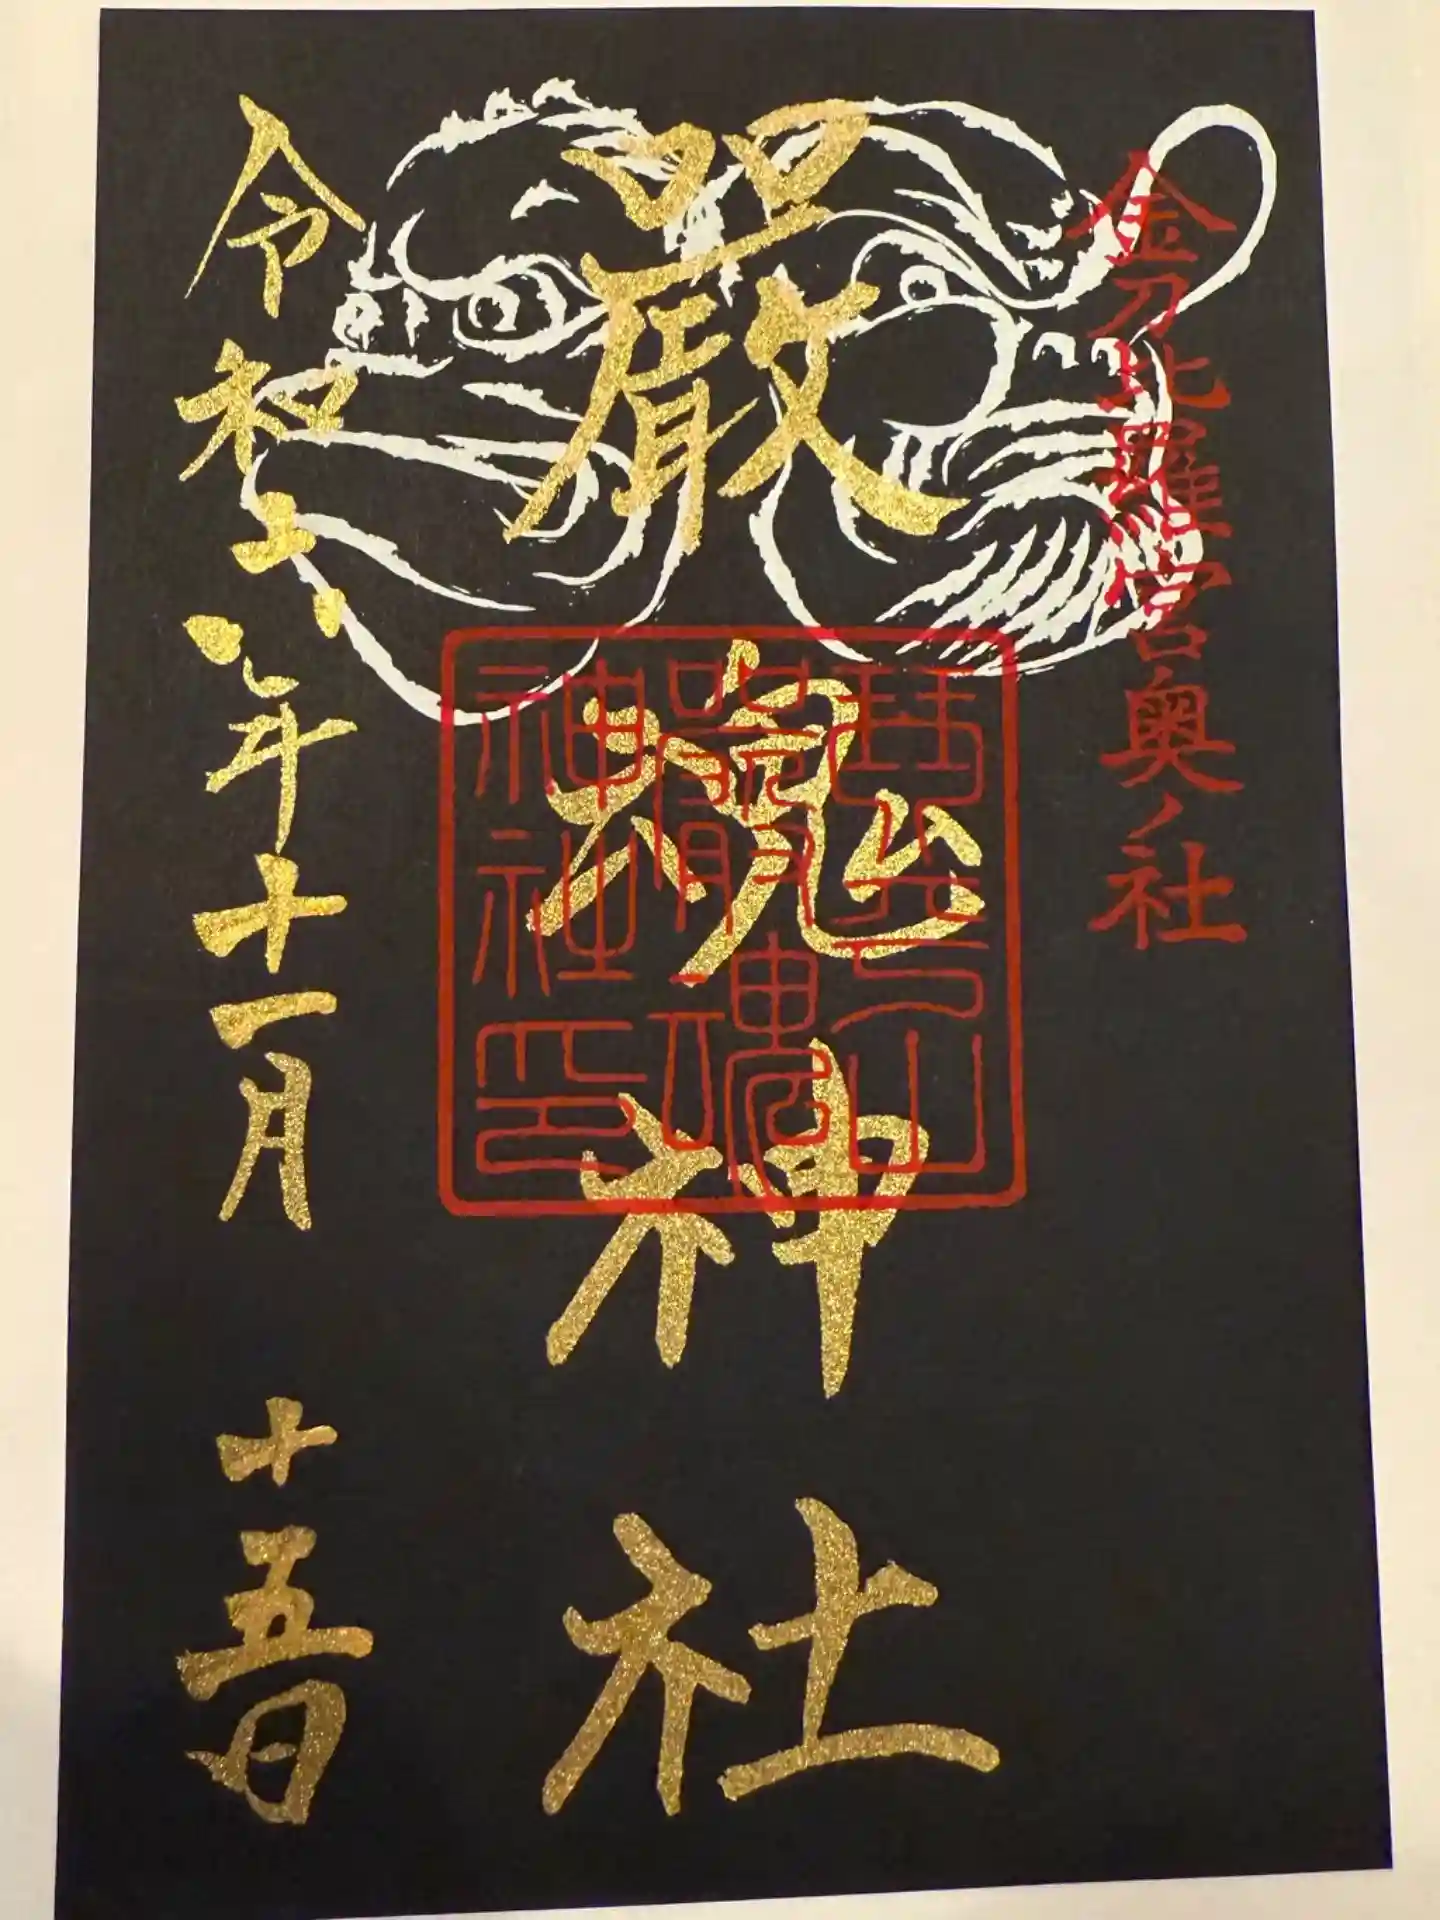 金刀比羅宮奥ノ社
嚴魂神社
琴平山
嚴魂
神社印
令和六年十一月十五日